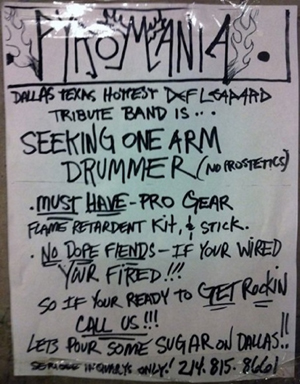 PYROMANIA
DALLAS TEXAS HOTTEST DEF LEAPARD
TRIBUTE BAND IS...
SEEKING ONE ARM
DRUMMER (NO PROSTETICS)
• MUST HAVE - PRO GEAR
FLAME RETARDENT KIT, & STICK.
• NO DOPE FIENDS - IF YOUR WIRED
YOUR FIRED!!!
SO IF YOUR READY TO GET ROCKIN
CALL US!!!
LETS POUR SOME SUGAR ON DALLAS!!
SERIOUS INQUARYS ONLY! 214.815.8661